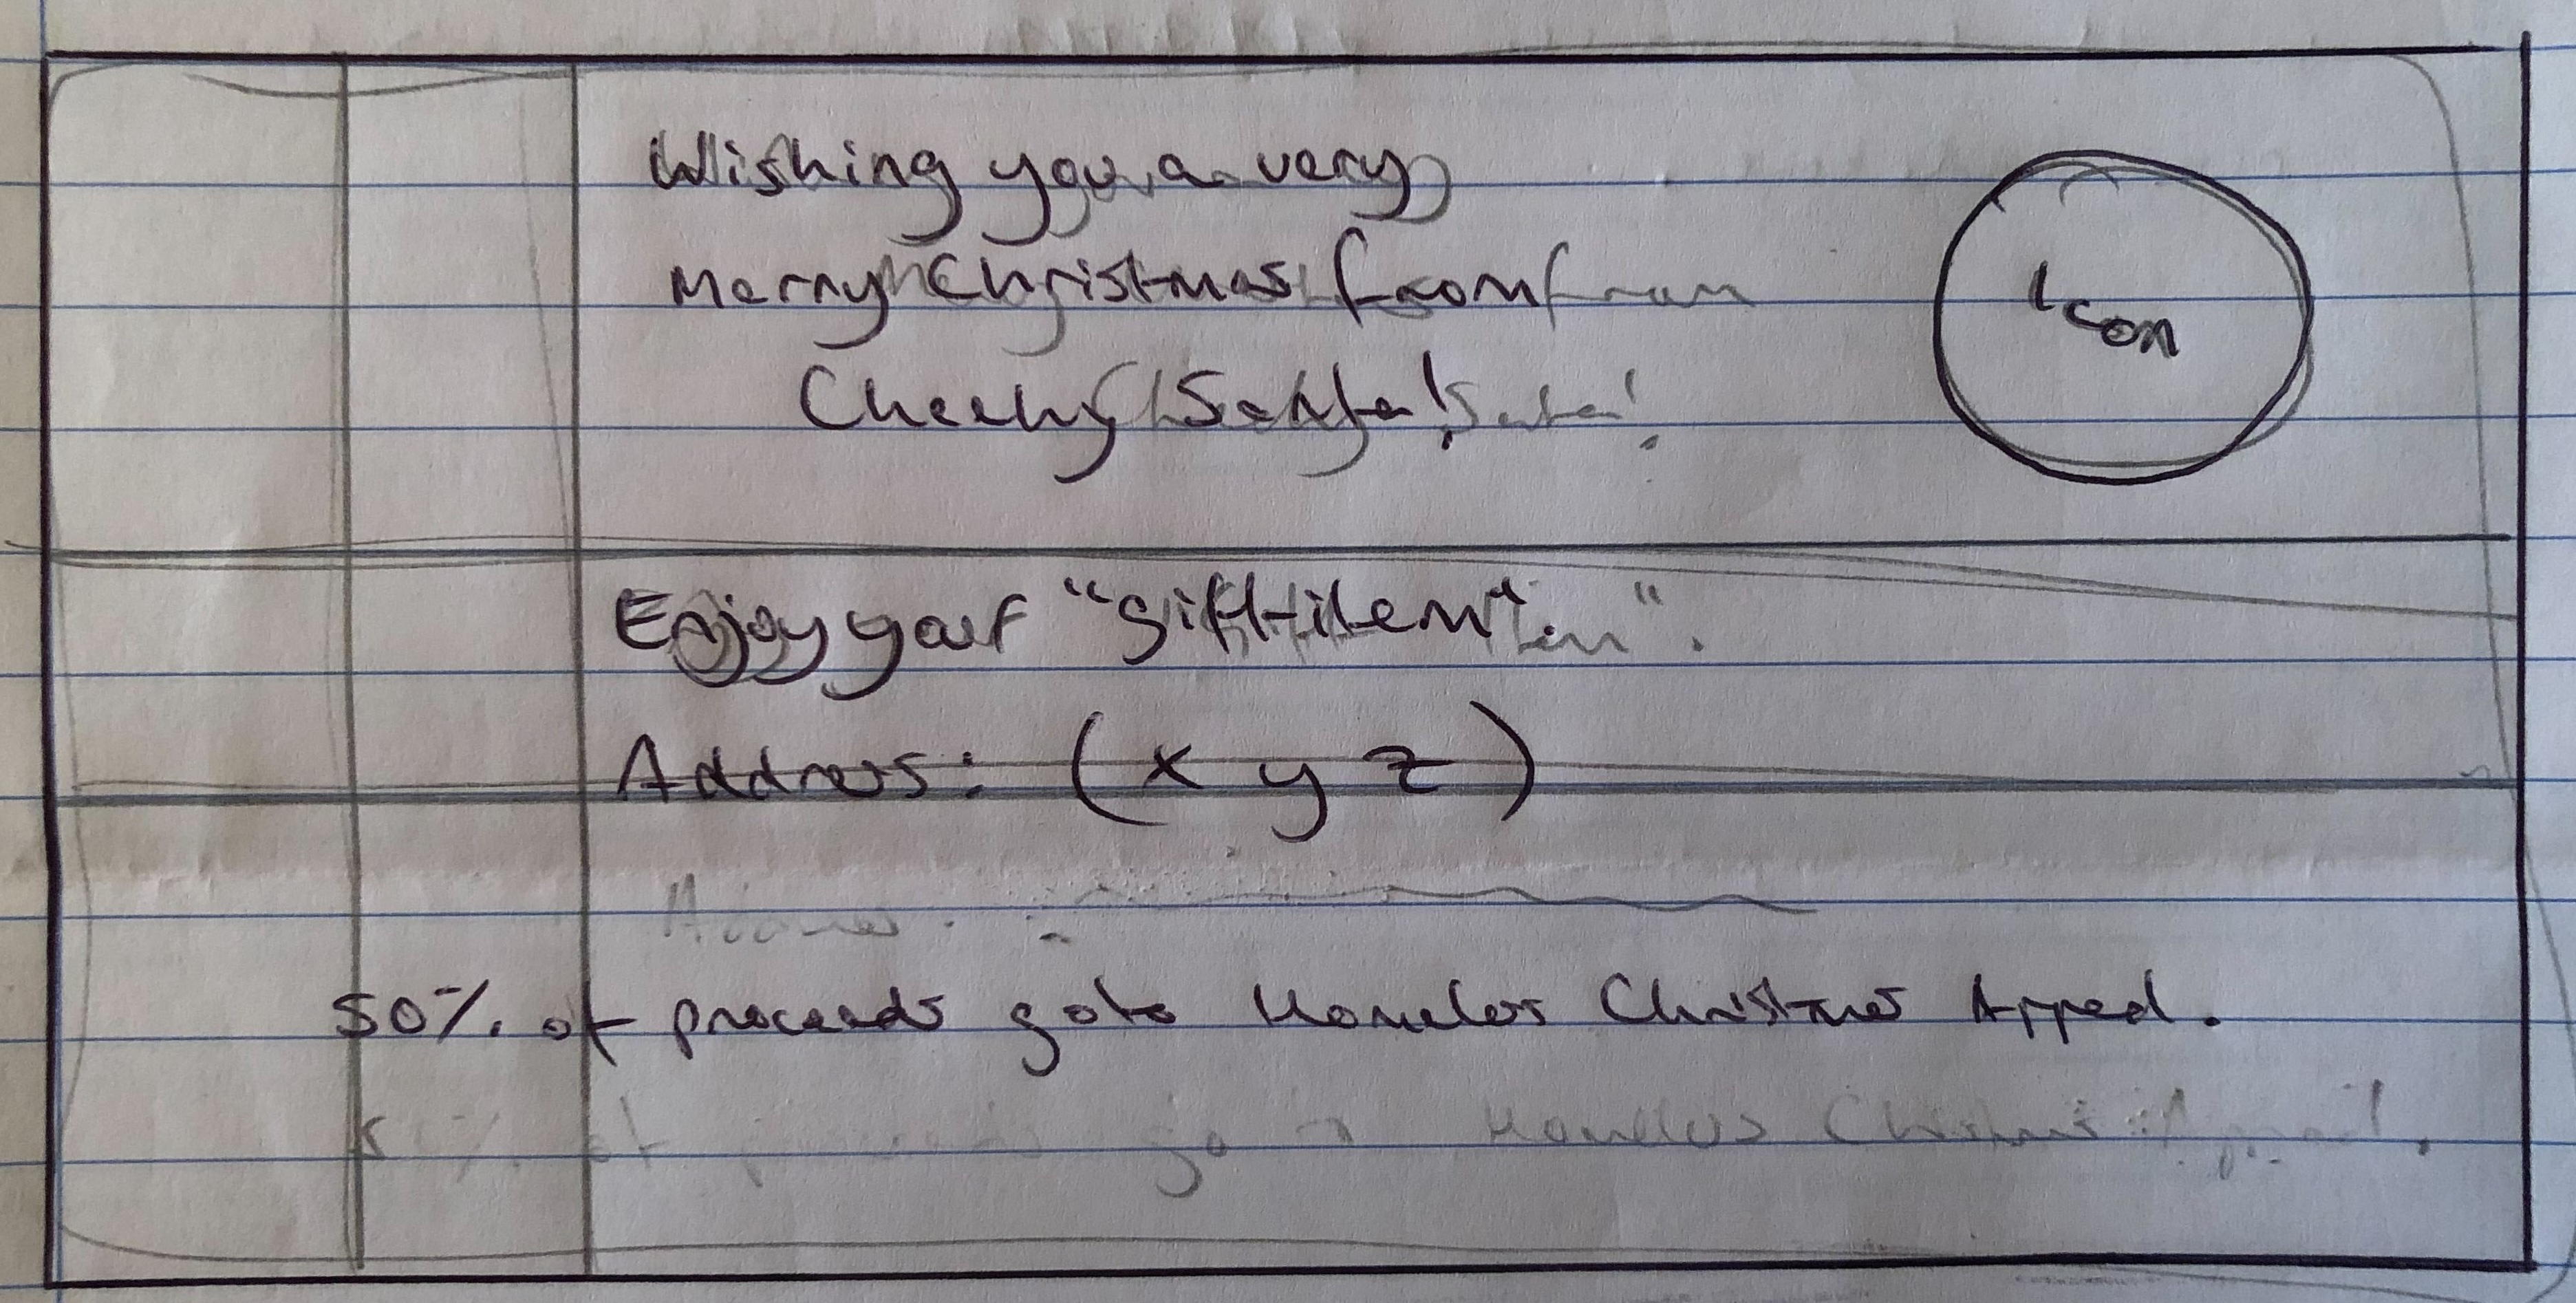 Wishing you a very
Merry Christmas from
Cheeky Santa!
Icon
Enjoy your "gift-item".
Address: (x y z)
Address:
50% of proceeds go to Homeless Christmas Appeal.
% of proceeds go to Homeless Christmas Appeal.